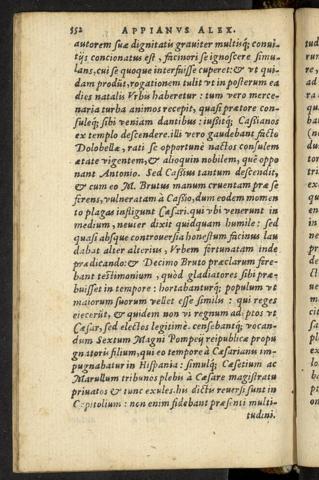 552 APPIANVS ALEX.
autorem suæ dignitatis grauiter multisq; conui-
tijs concionatus est, facinori se ignoscere simu-
lans, cui se quoque interfuisse cuperet: & vt qui-
dam produt, rogationem tulit vt in posterum ea
dies natalis Vrbis haberetur: tum vero merce-
naria turba animos recepit, quasi prætore con-
suleq; sibi veniam dantibus: iussitq; Cassianos
ex templo descendere. illi vero gaudebant facto
Dolobellæ, rati se opportunè nactos consulem
ætate vigentem, & alioquin nobilem, què oppo
nant Antonio. Sed Cassius tantum descendit,
& cum eo M. Brutus manum cruentam præ se
ferens, vulneratam à Cassio, dum eodem momen
to plagas infligunt Cæsari. qui vbi venerunt in
medium, neuter dixit quidquam humile: sed
quasi absque controuersia honestum facinus lau
dabat alter alterius, Vrbem fortunatam inde
prædicando: & Decimo Bruto præclarum fere-
bant testimonium, quòd gladiatores sibi præ-
buisset in tempore: hortabanturq; populum vt
maiorum suorum vellet esse similis: qui reges
eiecerũt, & quidem non vi regnum adeptos vt
Cæsar, sed electos legitimè. censebantq; vocan-
dum Sextum Magni Pompeij reipublicæ propu
gnatoris filium, qui eo tempore à Cæsarianis im-
pugnabatur in Hispania: simulq; Cæsetium ac
Marullum tribunos plebis à Cæsare magistratu
priuatos & tunc exules. his dictis reuersi sunt in
Capitolium: non enim fidebant præsenti multi-
tudini.